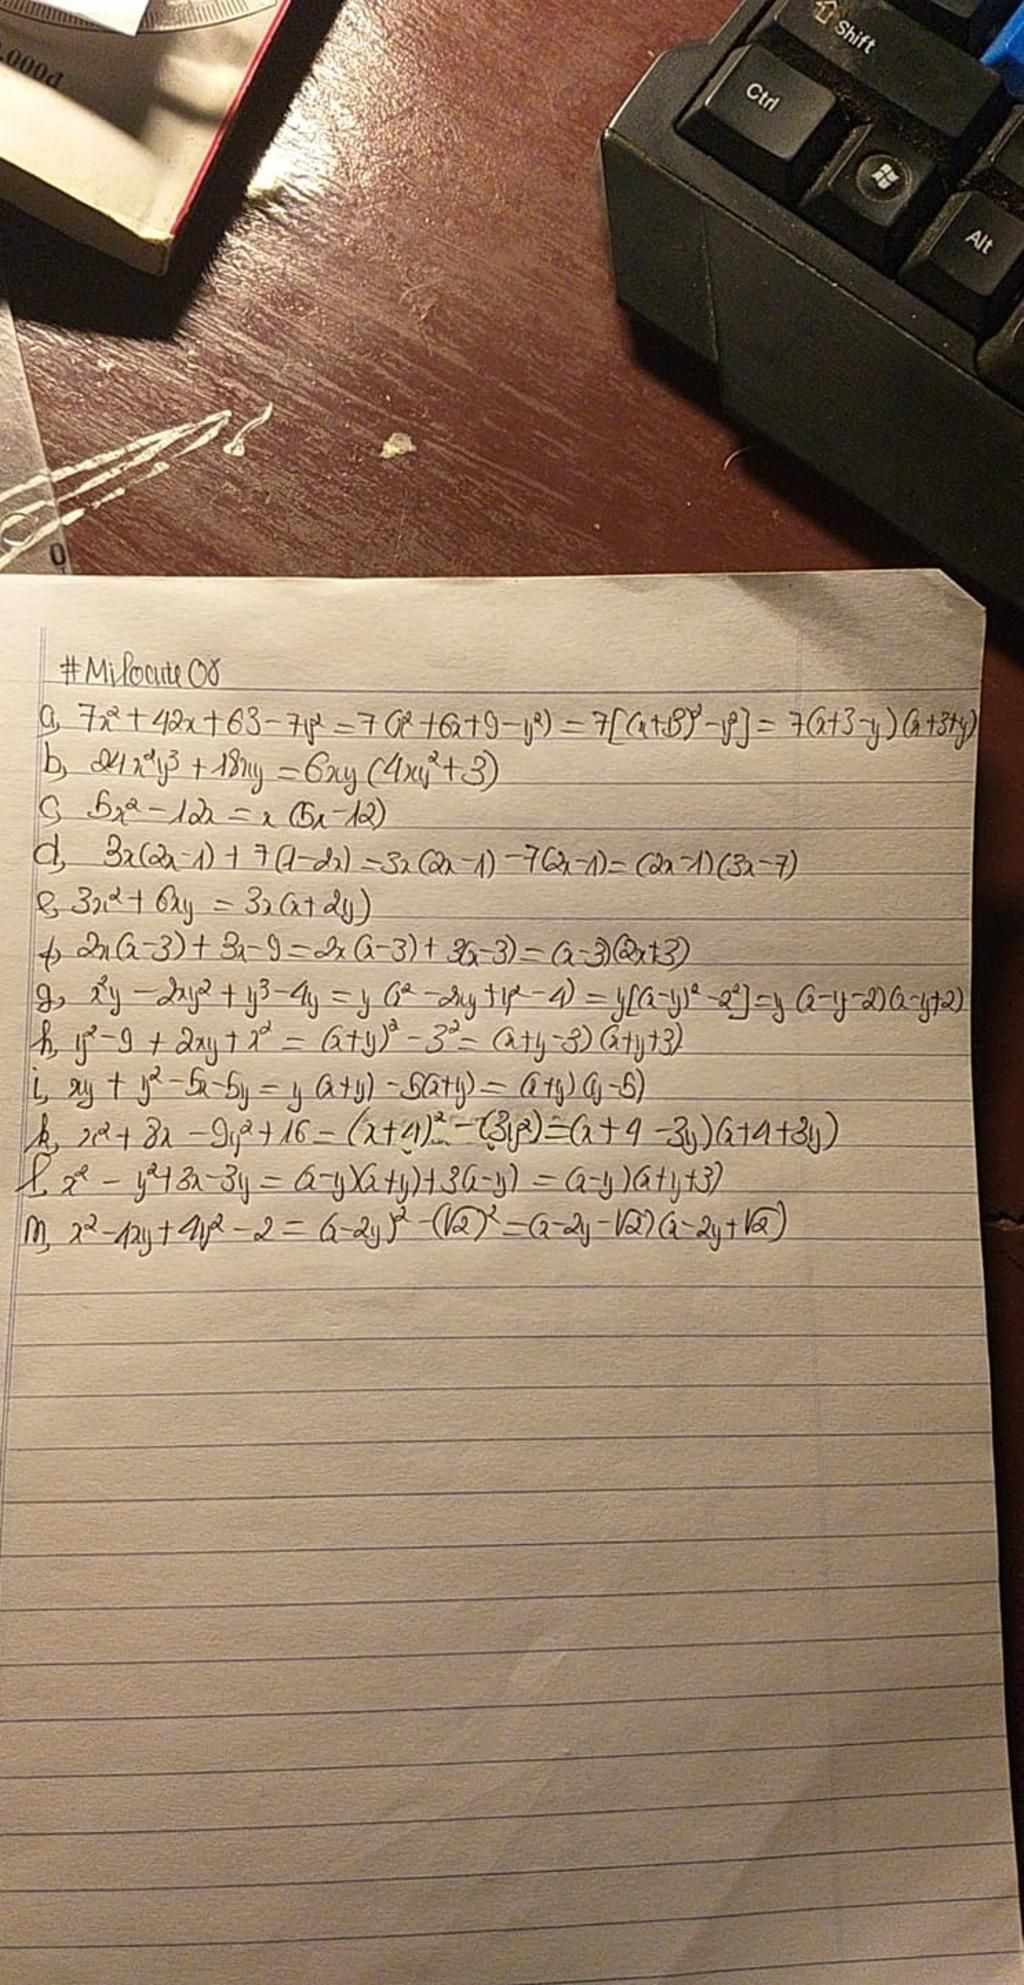 .000đ
Shift
Ctrl
Alt
0
#Milocute08
a, 7x² + 42x + 63 - 7y² = 7(x² + 6x + 9 - y²) = 7[(x+3)² - y²] = 7(x+3-y)(x+3+y)
b, 24x²y³ + 18xy = 6xy(4xy² + 3)
c, 5x² - 12x = x(5x - 12)
d, 3x(2x-1) + 7(1-2x) = 3x(2x-1) - 7(2x-1) = (2x-1)(3x-7)
e, 3x² + 6xy = 3x(x+2y)
f, 2x(x-3) + 3x - 9 = 2x(x-3) + 3(x-3) = (x-3)(2x+3)
g, x²y - 2xy² + y³ - 4y = y(x² - 2xy + y² - 4) = y[(x-y)² - 2²] = y(x-y-2)(x-y+2)
h, y² - 9 + 2xy + x² = (x+y)² - 3² = (x+y-3)(x+y+3)
i, xy + y² - 5x - 5y = y(x+y) - 5(x+y) = (x+y)(y-5)
k, x² + 8x - 9y² + 16 = (x+4)² - (3y²) = (x+4-3y)(x+4+3y)
l, x² - y² + 3x - 3y = (x-y)(x+y) + 3(x-y) = (x-y)(x+y+3)
m, x² - 4xy + 4y² - 2 = (x-2y)² - (√2)² = (x-2y-√2)(x-2y+√2)